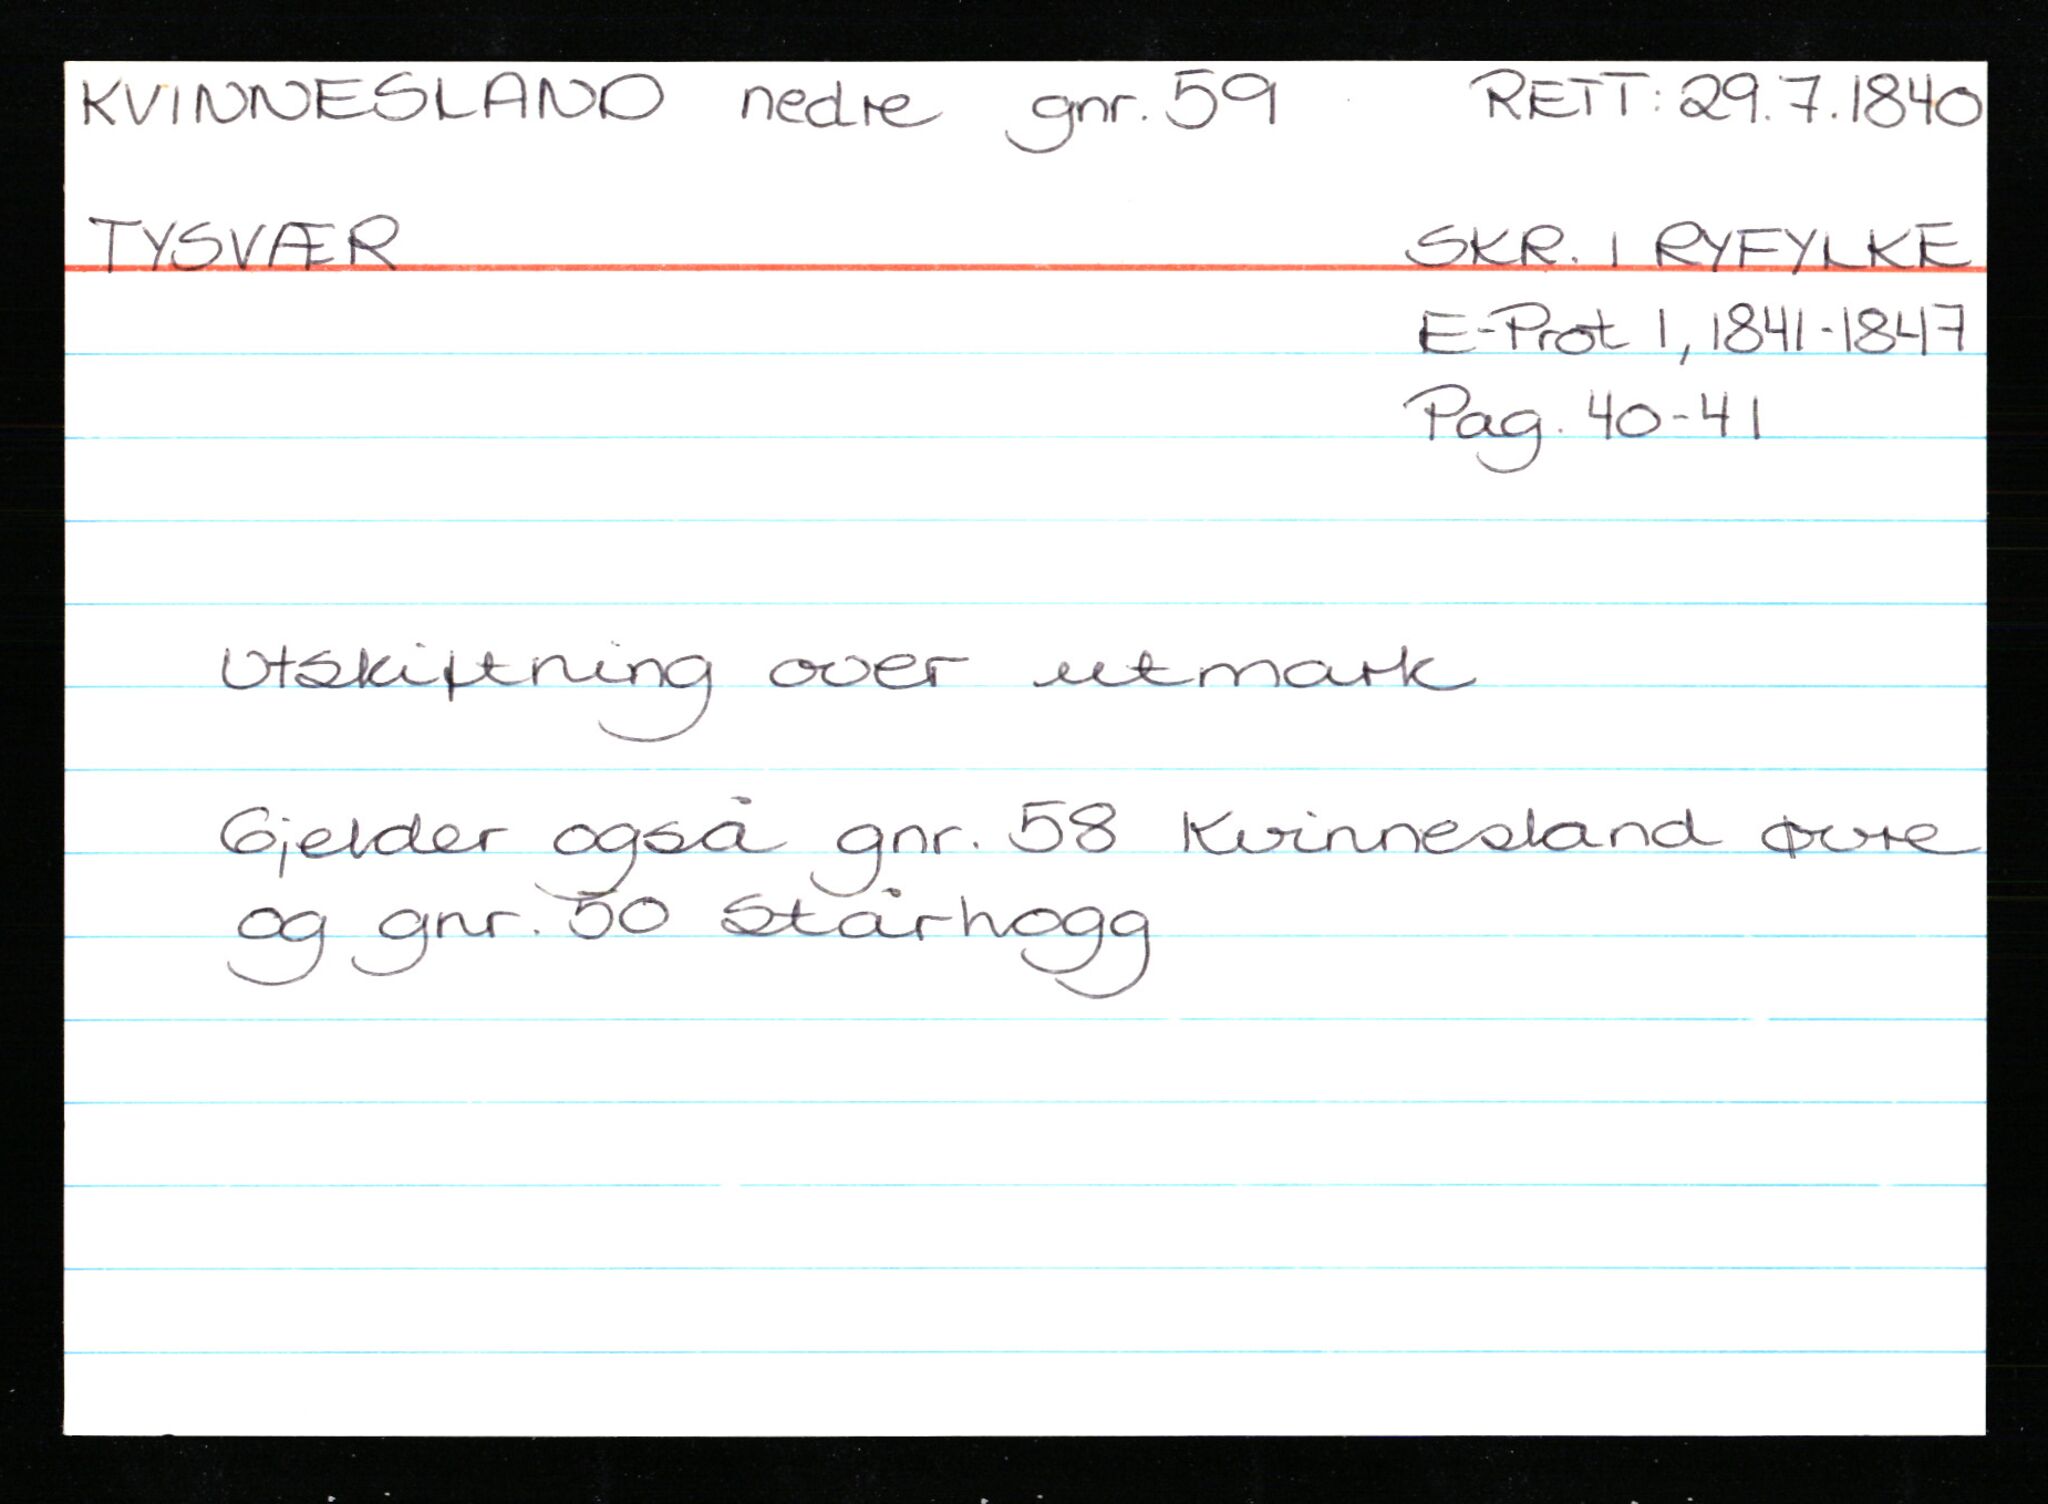 KVINNESLAND nedre gnr. 59 RETT: 29.7.1840
TYSVÆR SKR. I RYFYLKE
E-Prot 1, 1841-1847
Pag. 40-41
Utskiftning over utmark
Gjelder også gnr. 58 Kvinnesland øvre
og gnr. 50 Stårhogg